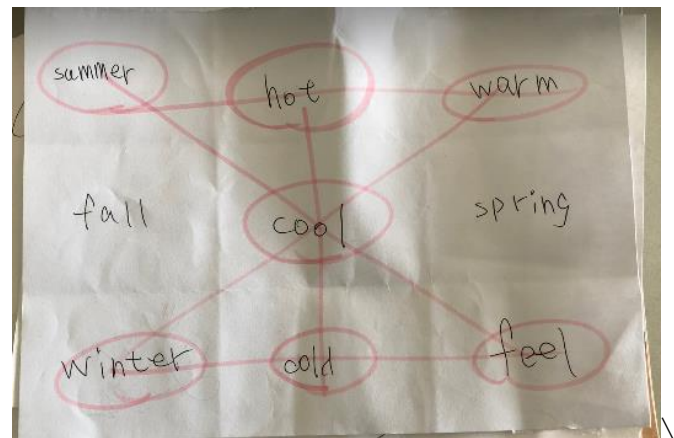 summer hot warm
fall cool spring
winter cold feel